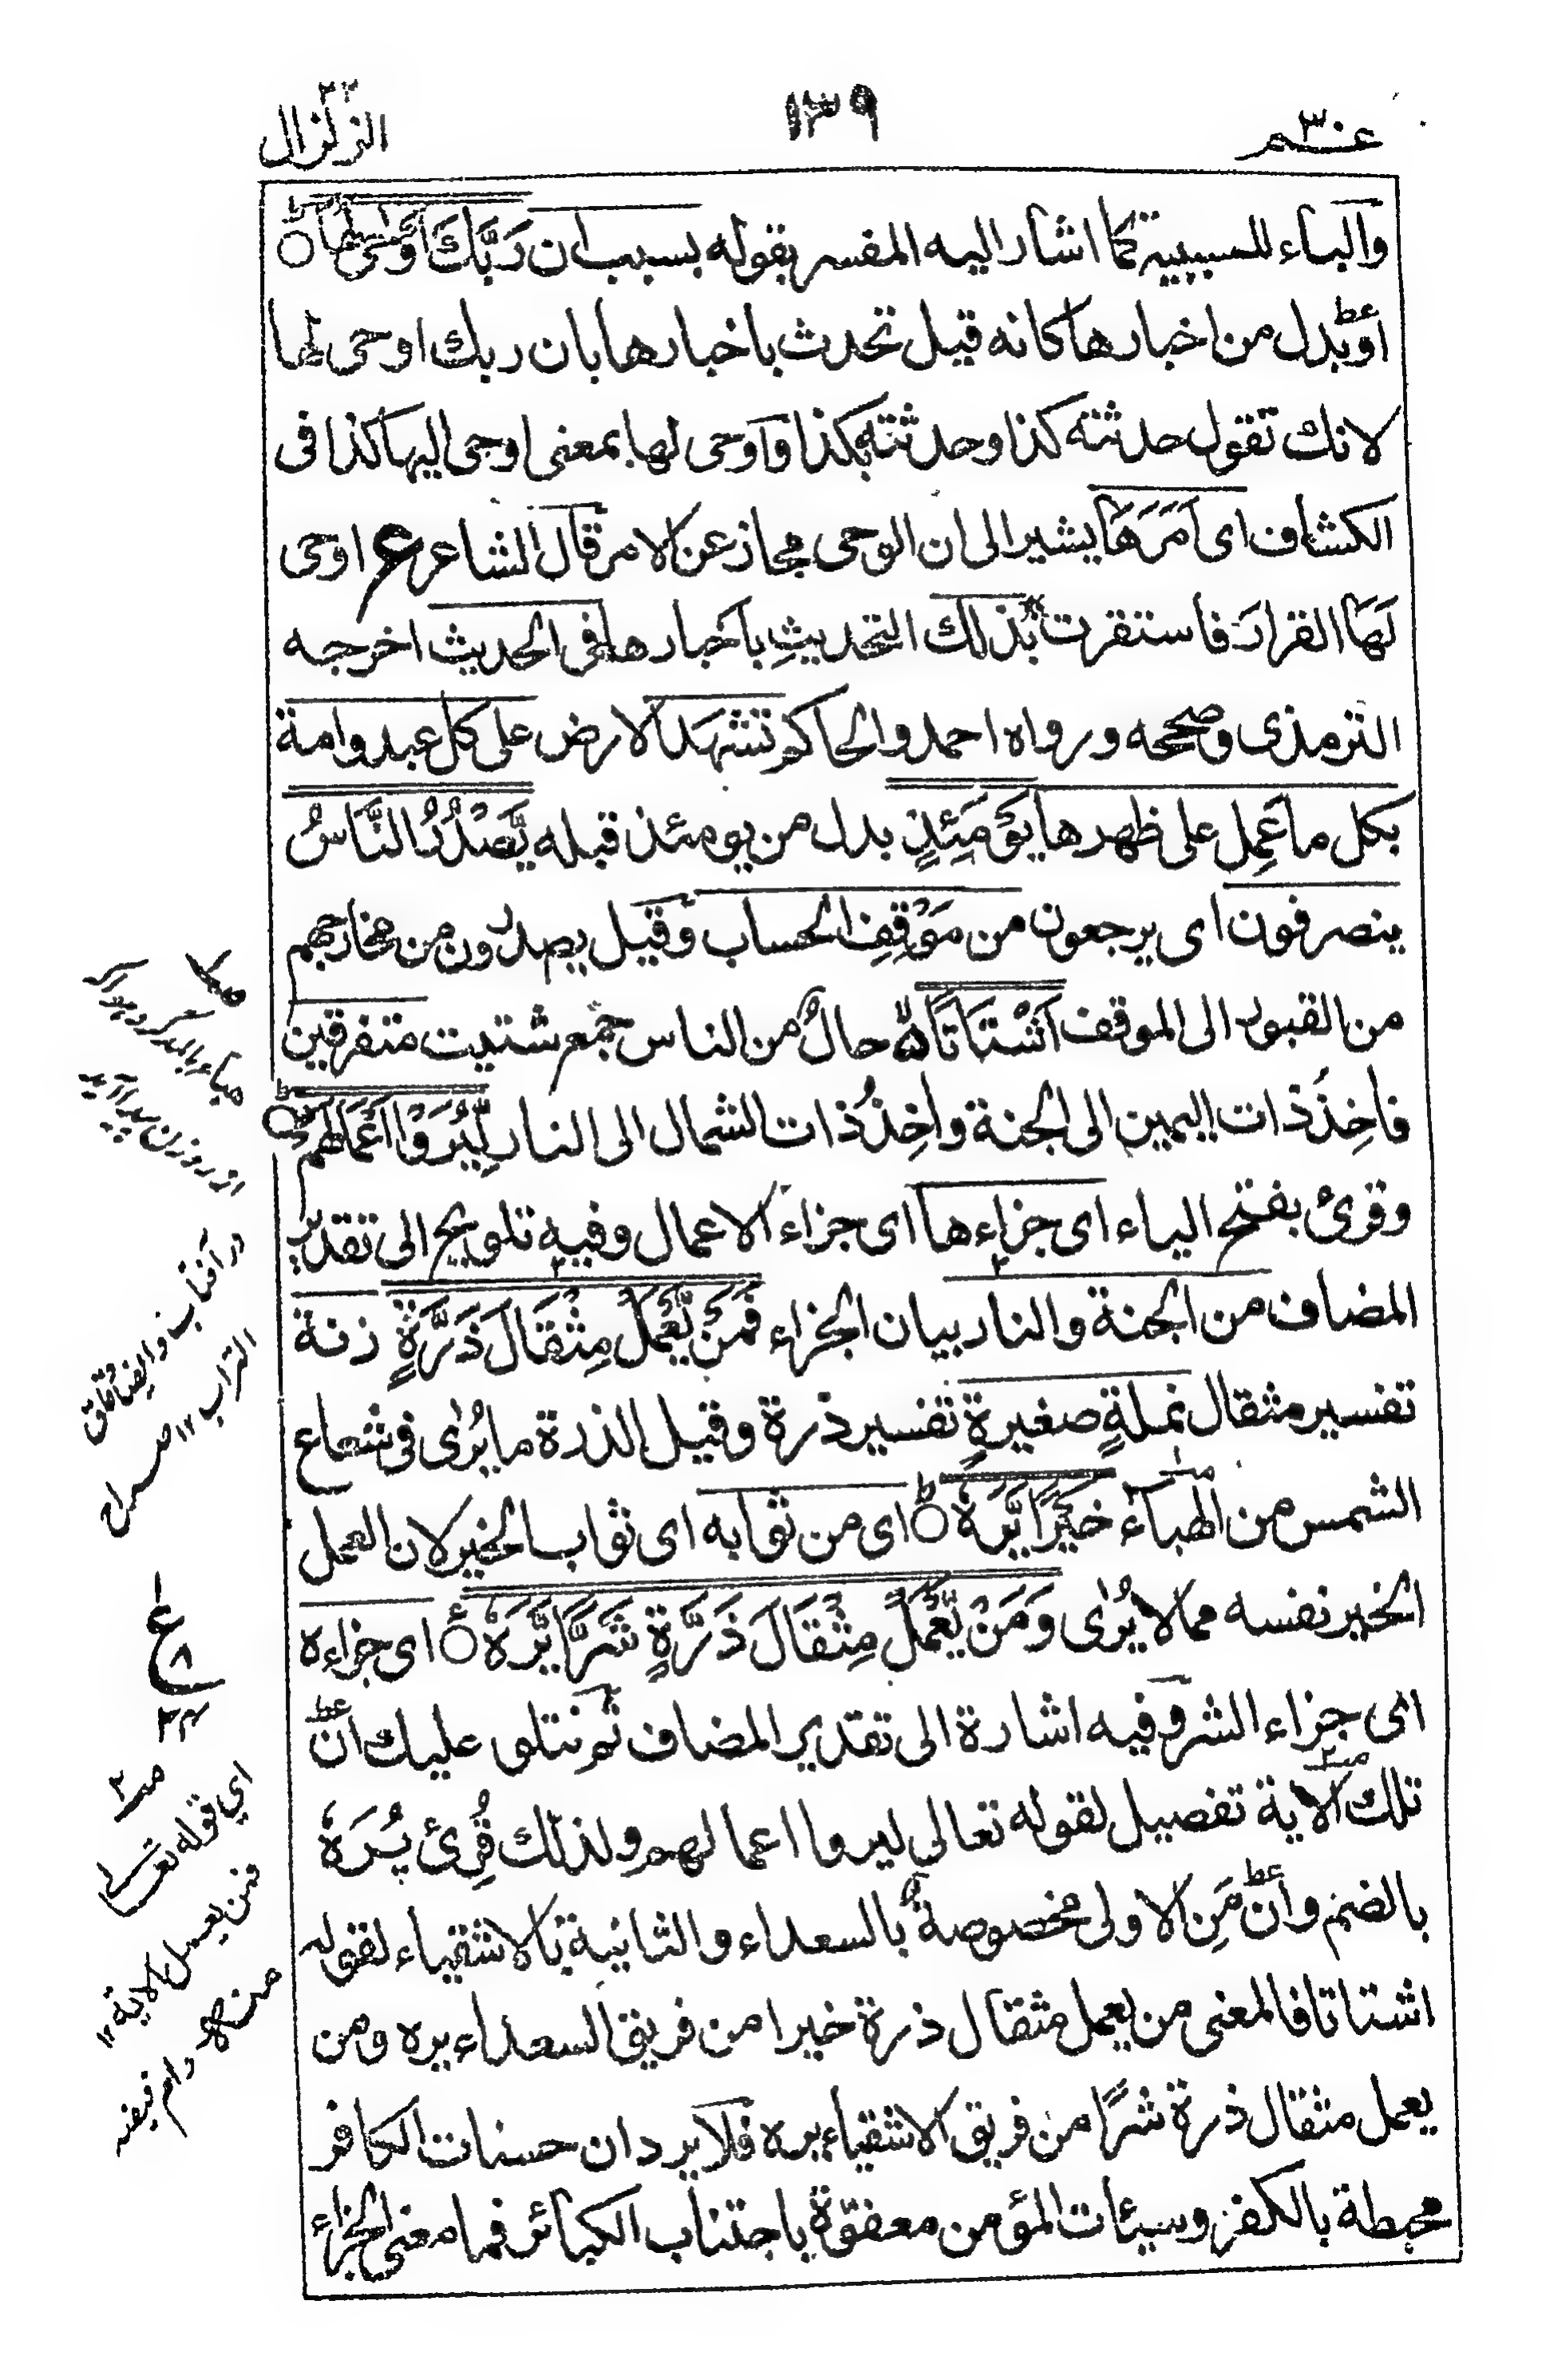 عم ٣٠
١٣٩
الزلزال
والباء للسببية كما اشار اليه المفسر بقوله بسبب ان رَبَّكَ اَوْحٰى لَهَا ط
او بدل من اخبارها كانه قيل تحدث باخبارها بان ربك اوحى لها
لانك تقول حدثته كذا وحدثته بكذا وَاوحى لها بمعنى اوحى اليها كذا فى
الكشاف اى اَمَرَهَا يشير الى ان الوحى مجاز عن الامر قال الشاعر ع اوحى
لَهَا القرارَ فاستقرت بذلك التحديثِ باخبارها فى الحديث اخرجه
الترمذى وصححه ورواه احمد والحاكم تشهَد الارض على كل عبد وامة
بكل ما عَمِل على ظهرها يَوْمَئِذٍ بدل من يومئذ قبله يَّصْدُرُ النَّاسُ
ينصرفون اى يرجعون من مَوْقِفِ الحساب وقيل يصدرون من مخارجهم
من القبور الى الموقف اَشْتَاتًا لا حالٌ من الناس جمع شتيت متفرقين
فاخِذُ ذات اليمين الى الجنة واخِذُ ذات الشمال الى النار لِيُّرَوْا اَعْمَالَهُمْ ط
وقرئ بفتح الياء اى جزاءها اى جزاء الاعمال وفيه تلويح الى تقدير
المضاف من الجنة والنار بيان الجزاء فَمَنْ يَّعْمَلْ مِثْقَالَ ذَرَّةٍ زنة
تفسير مثقال نملةٍ صغيرةٍ تفسير ذرة وقيل الذرة ما يُرٰى فى شعاع
الشمس من الهباء خَيْرًا يَّرَهٗ ط اى من ثوابه اى ثواب الخير لان العمل
الخير نفسه مما لا يُرٰى وَمَنْ يَّعْمَلْ مِثْقَالَ ذَرَّةٍ شَرًّا يَّرَهٗ ع اى جزاءه
اى جزاء الشر وفيه اشارة الى تقدير المضاف ثم نتلو عليك انّ
تلك الاية تفصيل لقوله تعالى ليروا اعمالهم ولذلك قُرِئ يُرَهٗ
بالضم وانّ مَنِ الاولى مخصوصة بالسعداء والثانية بالاشقياء لقوله
اشتاتا فالمعنى من يعمل مثقال ذرة خيرا من فريق السعداء يره ومن
يعمل مثقال ذرة شرًّا من فريق الاشقياء يره فلا يرد ان حسنات الكافر
محبطة بالكفر وسيئات المؤمن معفوّة باجتناب الكبائر فما معنى الجزاء
از روزن پديد آيد
در آفتاب وايضا دقاق
التراب ١٢ صراح
ع
٨
٢٤
اي قوله تعالى
فمن يعمل الاية ١٢
منه دام فيضه